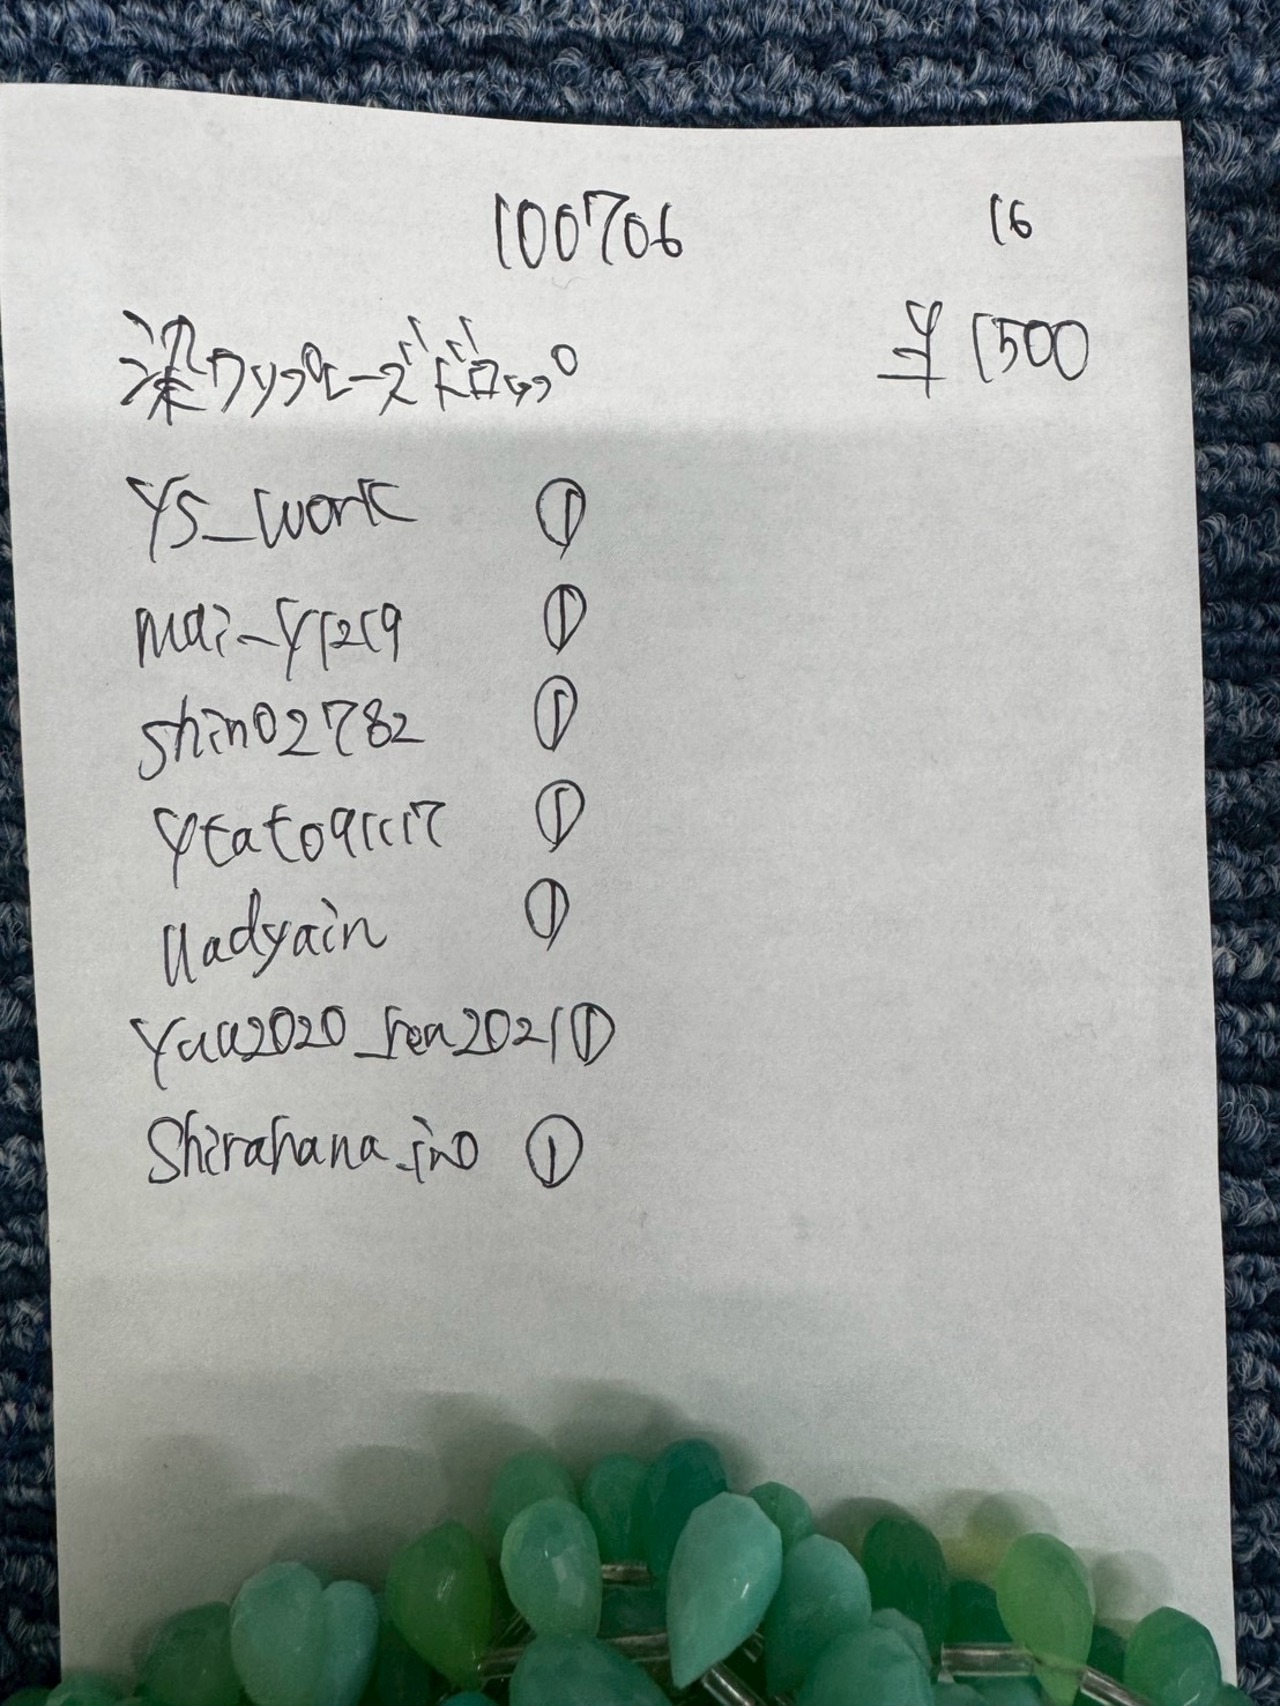 100706 16
染クリソプレーズドロップ ¥1500
YS_work ①
mai_y1219 ①
shino2782 ①
ytato91117 ①
uadyain ①
yuu2020_ren2021 ①
Shirahana_ino ①